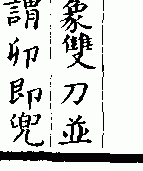 象雙刀並
謂卯即兜